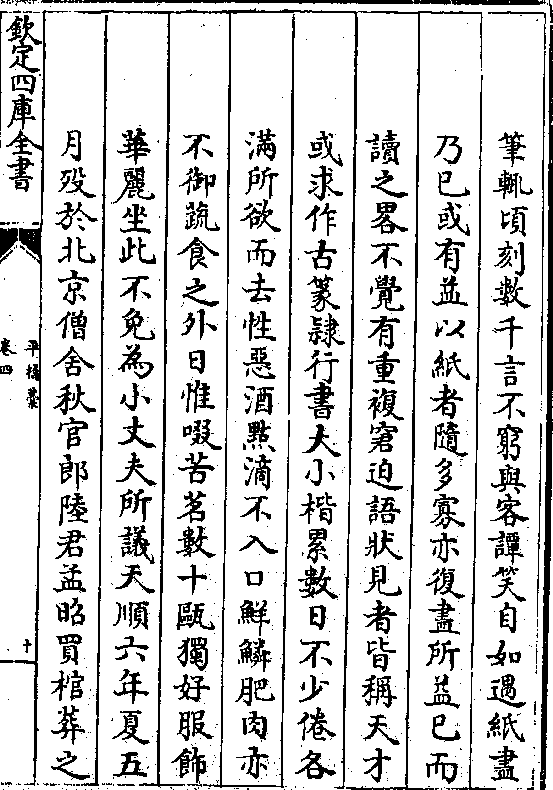 筆輒頃刻數千言不窮與客譚笑自如遇紙盡
乃已或有益以紙者隨多寡亦復盡所益已而
讀之畧不覺有重複窘迫語狀見者皆稱天才
或求作古篆𨽻行書大小楷累數日不少倦各
滿所欲而去性惡酒點滴不入口鮮鱗肥肉亦
不御蔬食之外日惟啜苦茗數十甌獨好服飾
華麗坐此不免為小丈夫所議天順六年夏五
月歿於北京僧舍秋官郎陸君孟昭買棺葬之
欽定四庫全書
平橋藁
卷四
十